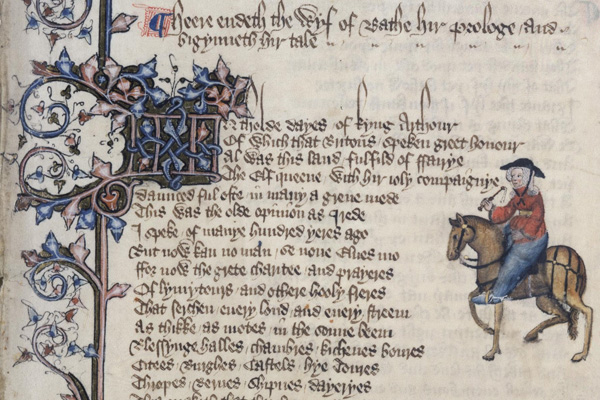 Heere endeth the Wyf of Bathe hir prologe and
bigynneth hir tale
In tholde dayes of kyng Arthour
Of which that Britons speken greet honour
Al was this land fulfild of ffairye
The Elf queene with hir ioly compaignye
Daunced ful ofte in many a grene mede
This was the olde opinion as I rede
I speke of manye hundred yeres ago
But now kan no man se none Elues mo
ffor now the grete charitee and prayeres
Of lymytours and othere hooly freres
That serchen euery lond and euery streem
As thikke as motes in the sonne beem
Blessynge halles chambres kichenes boures
Citees Burghes Castels hye Toures
Thropes Bernes Shipnes dayeryes
This maketh that ther